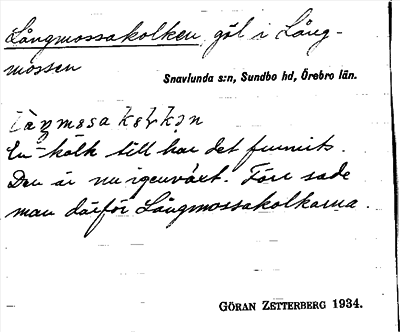 Långmossakolken, göl i Lång-
mossen
Snavlunda s:n, Sundbo hd, Örebro län.
En kolk till har det funnits.
Den är nu igenväxt. Förr sade
man därför Långmossakolkarna.
GÖRAN ZETTERBERG 1934.